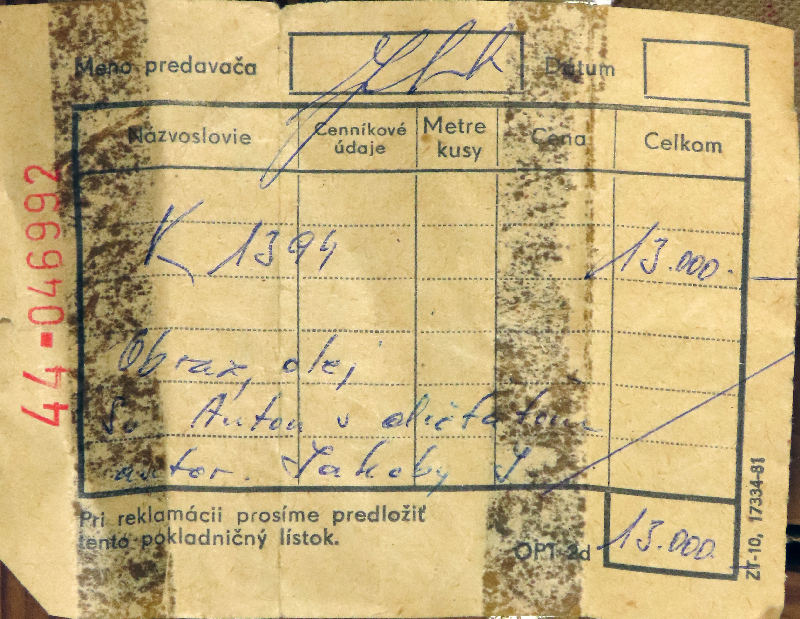 Meno predavača Dátum
Názvoslovie Cenníkové údaje Metre kusy Cena Celkom
K 1394 13.000.
Obraz, olej
Sv. Anton s dieťaťom
autor. Jakoby J.
Pri reklamácii prosíme predložiť
tento pokladničný lístok.
OPT 2d 13.000.
44-046992
ZT-10, 17334-81